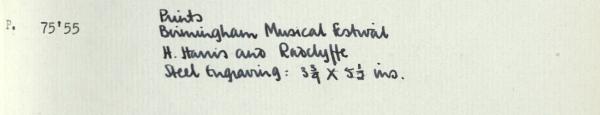 Prints
P. 75'55 Birmingham Musical Festival
H. Harris and Radclyffe
Steel Engraving: 3¾ X 5½ ins.